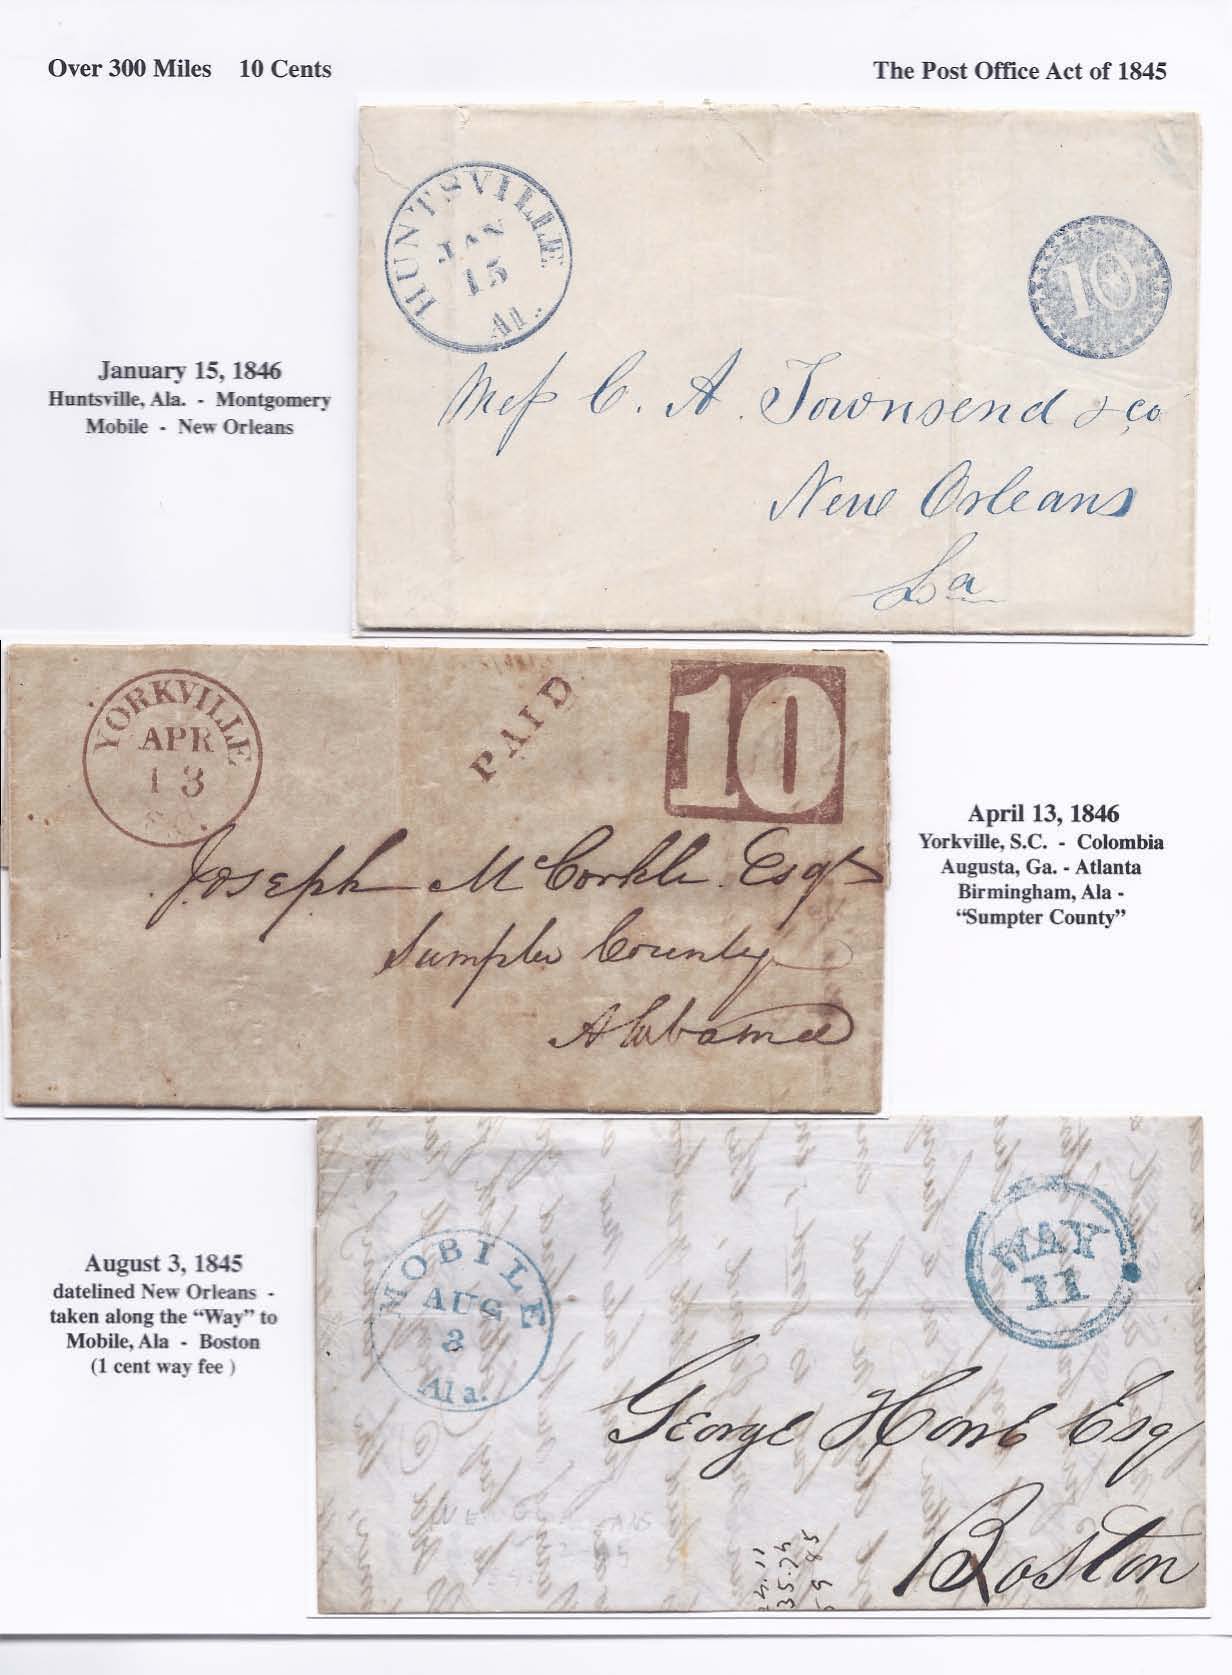 Over 300 Miles 10 Cents
The Post Office Act of 1845
HUNTSVILLE
JAN
15
Al.
10
Mess C. A. Townsend & co
New Orleans
La
January 15, 1846
Huntsville, Ala. - Montgomery
Mobile - New Orleans
YORKVILLE
APR
13
PAID
10
Joseph McCorkle Esqr
Sumpter County
Alabama
April 13, 1846
Yorkville, S.C. - Colombia
Augusta, Ga. - Atlanta
Birmingham, Ala -
“Sumpter County”
August 3, 1845
datelined New Orleans -
taken along the “Way” to
Mobile, Ala - Boston
(1 cent way fee )
MOBILE
AUG
3
Ala.
WAY
11
George Howe Esq
Boston